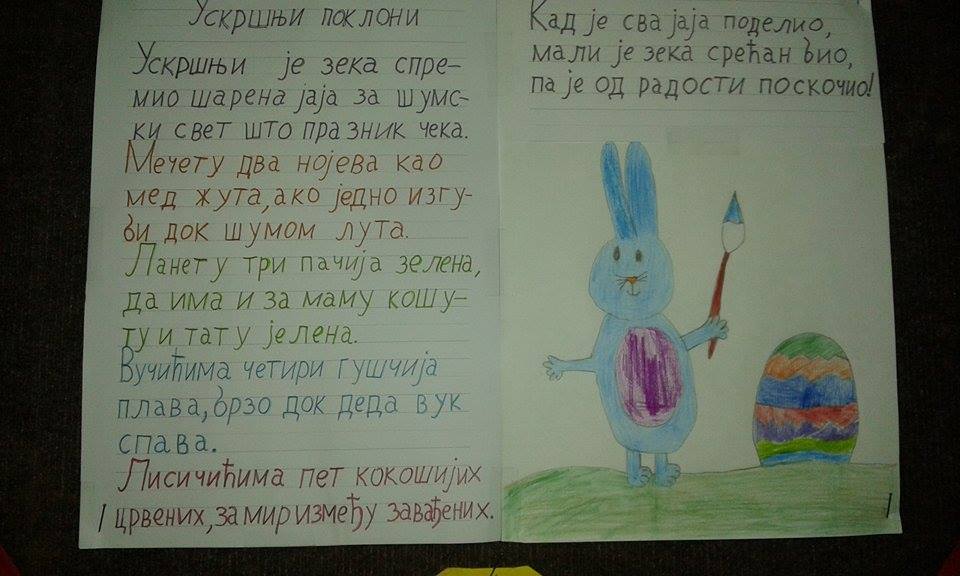 Ускршњи поклони
Ускршњи је зека спре-
мио шарена јаја за шумс-
ки свет што празник чека.
Мечету два нојева као
мед жута, ако једно изгу-
би док шумом лута.
Ланету три пачија зелена,
да има и за маму кошу-
ту и тату јелена.
Вучићима четири гушчија
плава, брзо док деда вук
спава.
Лисичићима пет кокошијих
црвених, за мир између завађених.
Кад је сва јаја поделио,
мали је зека срећан био,
па је од радости поскочио!